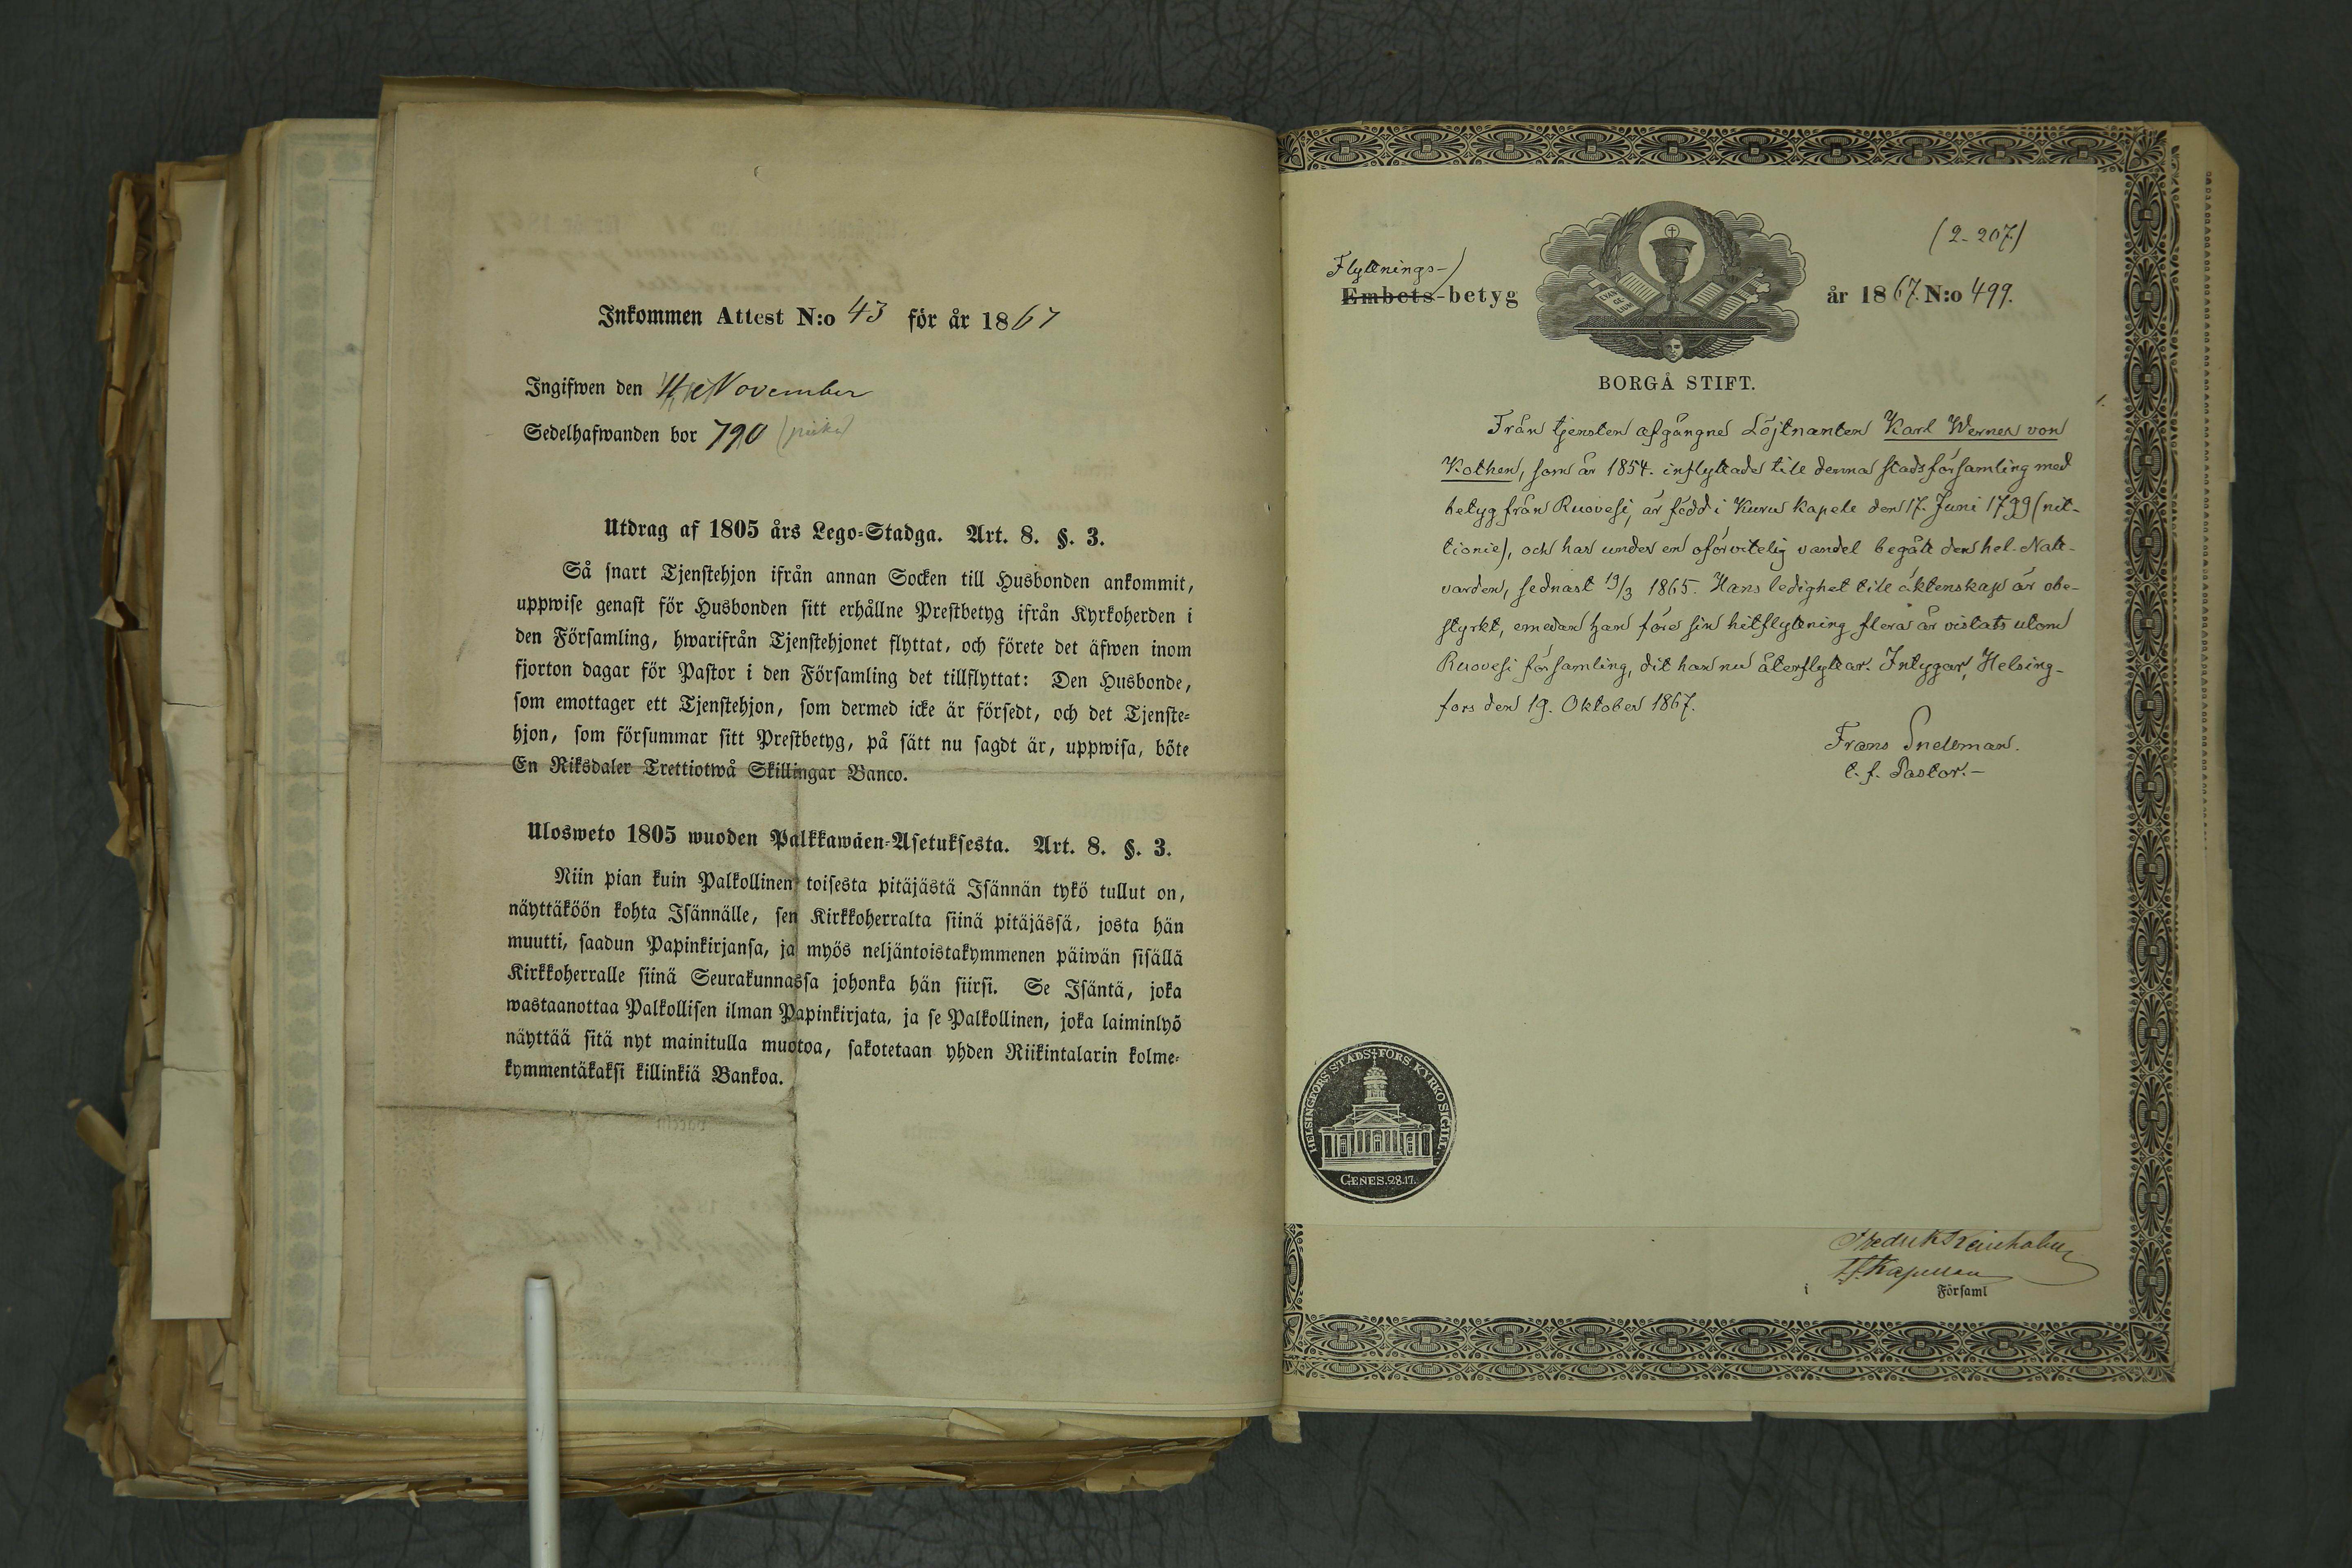 Inkommen Attest N:o 43 för år 1867
Ingifwen den 4 November
Sedelhafwanden bor 790
Utdrag af 1805 års Lego-Stadga. Art. 8. §. 3.
Så snart Tjenstehjon ifrån annan Socken till Husbonden ankommit,
uppwise genast för Husbonden sitt erhållne Prestbetyg ifrån Kyrkoherden i
den Församling, hwarifrån Tjenstehjonet flyttat, och förete det äfwen inom
fjorton dagar för Pastor i den Församling det tillflyttat: Den Husbonde,
som emottager ett Tjenstehjon, som dermed icke är försedt, och det Tjenste-
hjon, som försummar sitt Prestbetyg, på sätt nu sagdt är, uppwisa, böte
En Riksdaler Trettiotwå Skillingar Banco.
Ulosweto 1805 wuoden Palkkawäen-Asetuksesta. Art. 8. §. 3.
Niin pian kuin Palkollinen toisesta pitäjästä Isännän tykö tullut on,
näyttäköön kohta Isännälle, sen Kirkkoherralta siinä pitäjässä, josta hän
muutti, saadun Papinkirjansa, ja myös neljäntoistakymmenen päiwän sisällä
Kirkkoherralle siinä Seurakunnassa johonka hän siirsi. Se Isäntä, joka
wastaanottaa Palkollisen ilman Papinkirjata, ja se Palkollinen, joka laiminlyö
näyttää sitä nyt mainitulla muotoa, sakotetaan yhden Riikintalarin kolme-
kymmentäkaksi killinkiä Bankoa.
(2-207)
Flyttnings-
Embets-betyg
EVAN GE LIUM
år 1867. N:o 499.
BORGÅ STIFT.
Från tjensten afgångne Löjtnanten Karl Werner von
Kothen, som år 1854. inflyttade till denna stadsförsamling med
betyg från Ruovesi, är född i Kuru kapell den 17. Juni 1799 (nit-
tionie), och har under en oförvitelig vandel begått den hel. Natt-
varden, sednast 19/3 1865. Hans ledighet till äktenskap är obe-
styrkt, emedan han före sin hitflyttning flera år vistats utom
Ruovesi församling, dit han nu återflyttar. Intygar, Helsing-
fors den 19. Oktober 1867.
Frans Snellman.
t. f. Pastor.-
HELSINGFORS STADS FÖRS KYRKO SIGILL.
GENES. 28.17.
i Församl